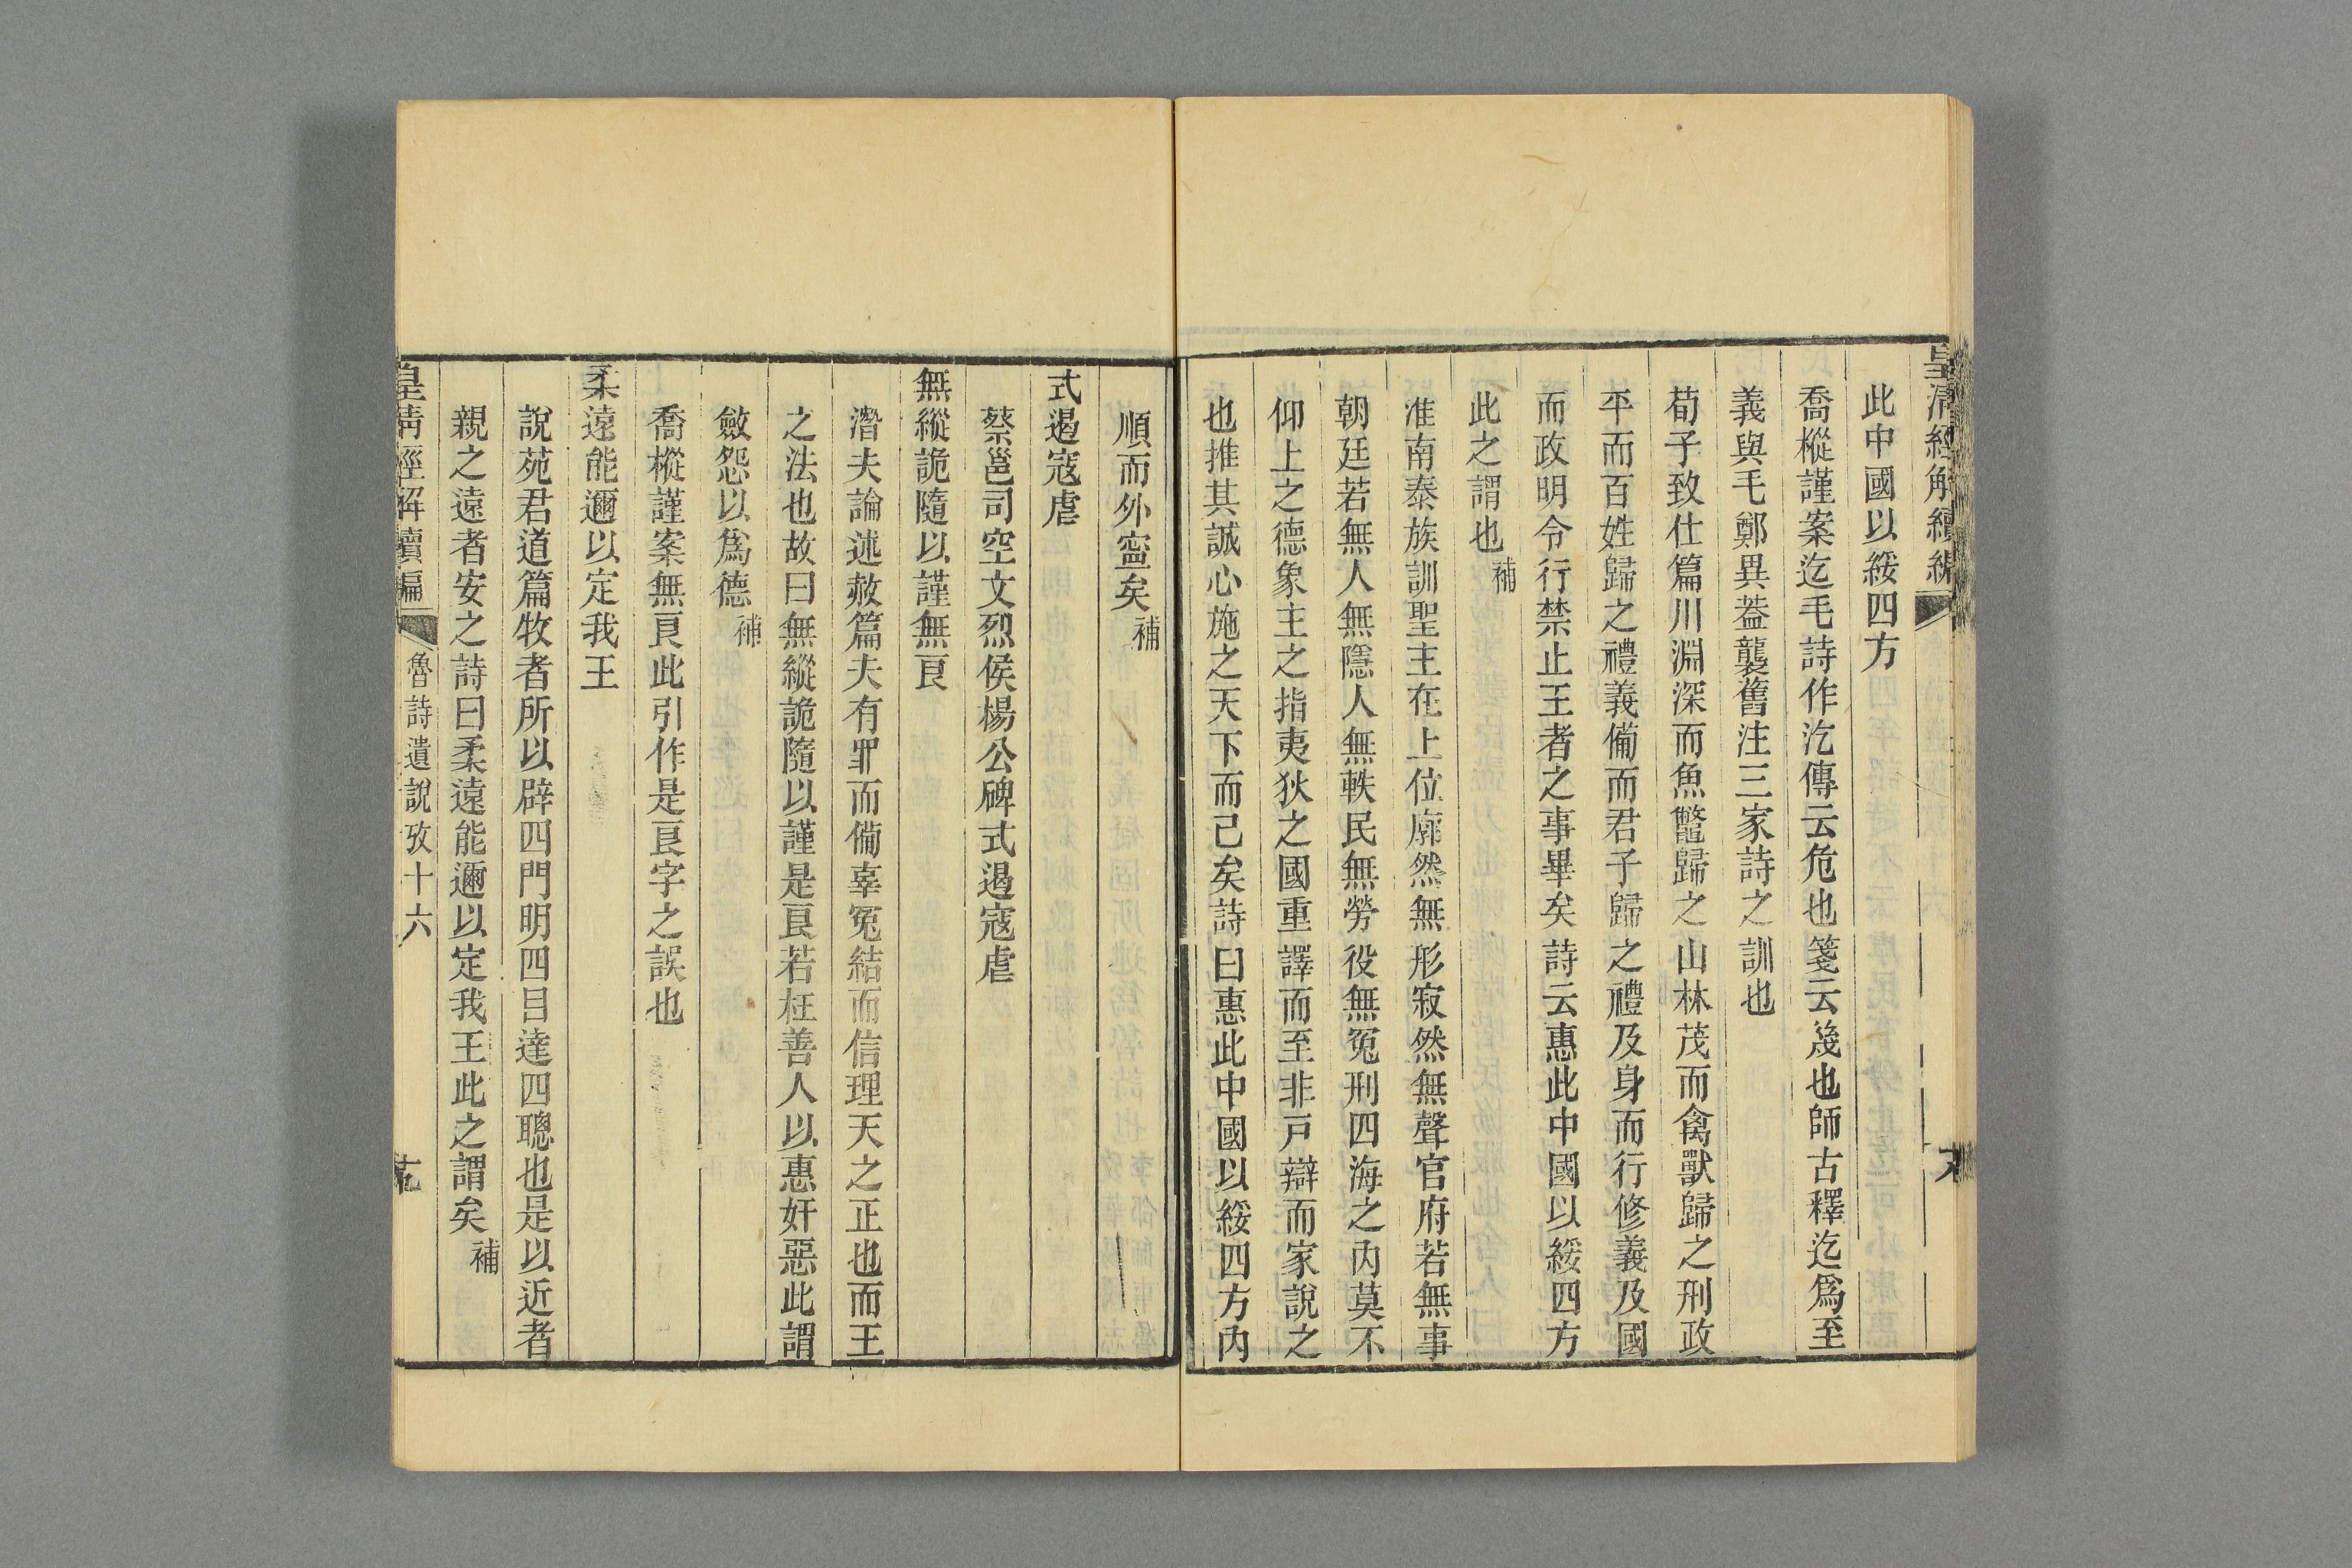 皇清經解續編
此中國以綏四方
喬樅謹案迄毛詩作汔傳云危也箋云幾也師古釋迄爲至
義與毛鄭異葢襲舊注三家詩之訓也
荀子致仕篇川淵深而魚鼈歸之山林茂而禽獸歸之刑政
平而百姓歸之禮義備而君子歸之禮及身而行修義及國
而政明令行禁止王者之事畢矣詩云惠此中國以綏四方
此之謂也補
淮南泰族訓聖主在上位廓然無形寂然無聲官府若無事
朝廷若無人無隱人無軼民無勞役無冤刑四海之內莫不
仰上之德象主之指夷狄之國重譯而至非戸辯而家說之
也推其誠心施之天下而己矣詩曰惠此中國以綏四方內
順而外寍矣補
式遏寇虐
蔡邕司空文烈侯楊公碑式遏寇虐
無縱詭隨以謹無㫰
潛夫論述赦篇夫有罪而備辜冤結而信理天之正也而王
之法也故曰無縱詭隨以謹是㫰若枉善人以惠奸惡此謂
斂怨以爲德補
喬樅謹案無㫰此引作是㫰字之誤也
柔遠能邇以定我王
說苑君道篇牧者所以辟四門明四目達四聰也是以近者
親之遠者安之詩曰柔遠能邇以定我王此之謂矣補
皇清經解續編
魯詩遺說攷十六